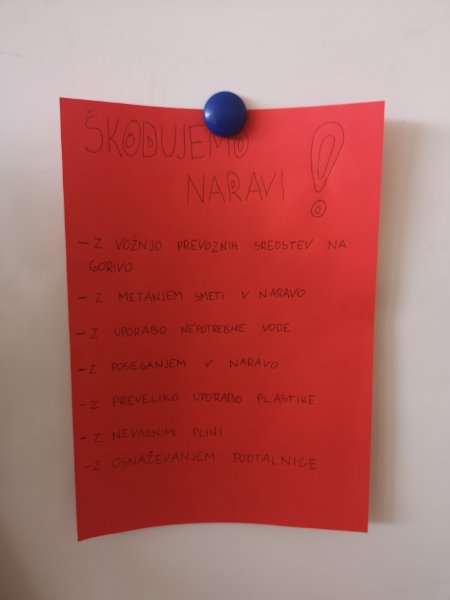 ŠKODUJEMO
NARAVI !
- Z VOŽNJO PREVOZNIH SREDSTEV NA
GORIVO
- Z METANJEM SMETI V NARAVO
- Z UPORABO NEPOTREBNE VODE
- Z POSEGANJEM V NARAVO
- Z PREVELIKO UPORABO PLASTIKE
- Z NEVARNIMI PLINI
- Z OSNAŽEVANJEM PODTALNICE